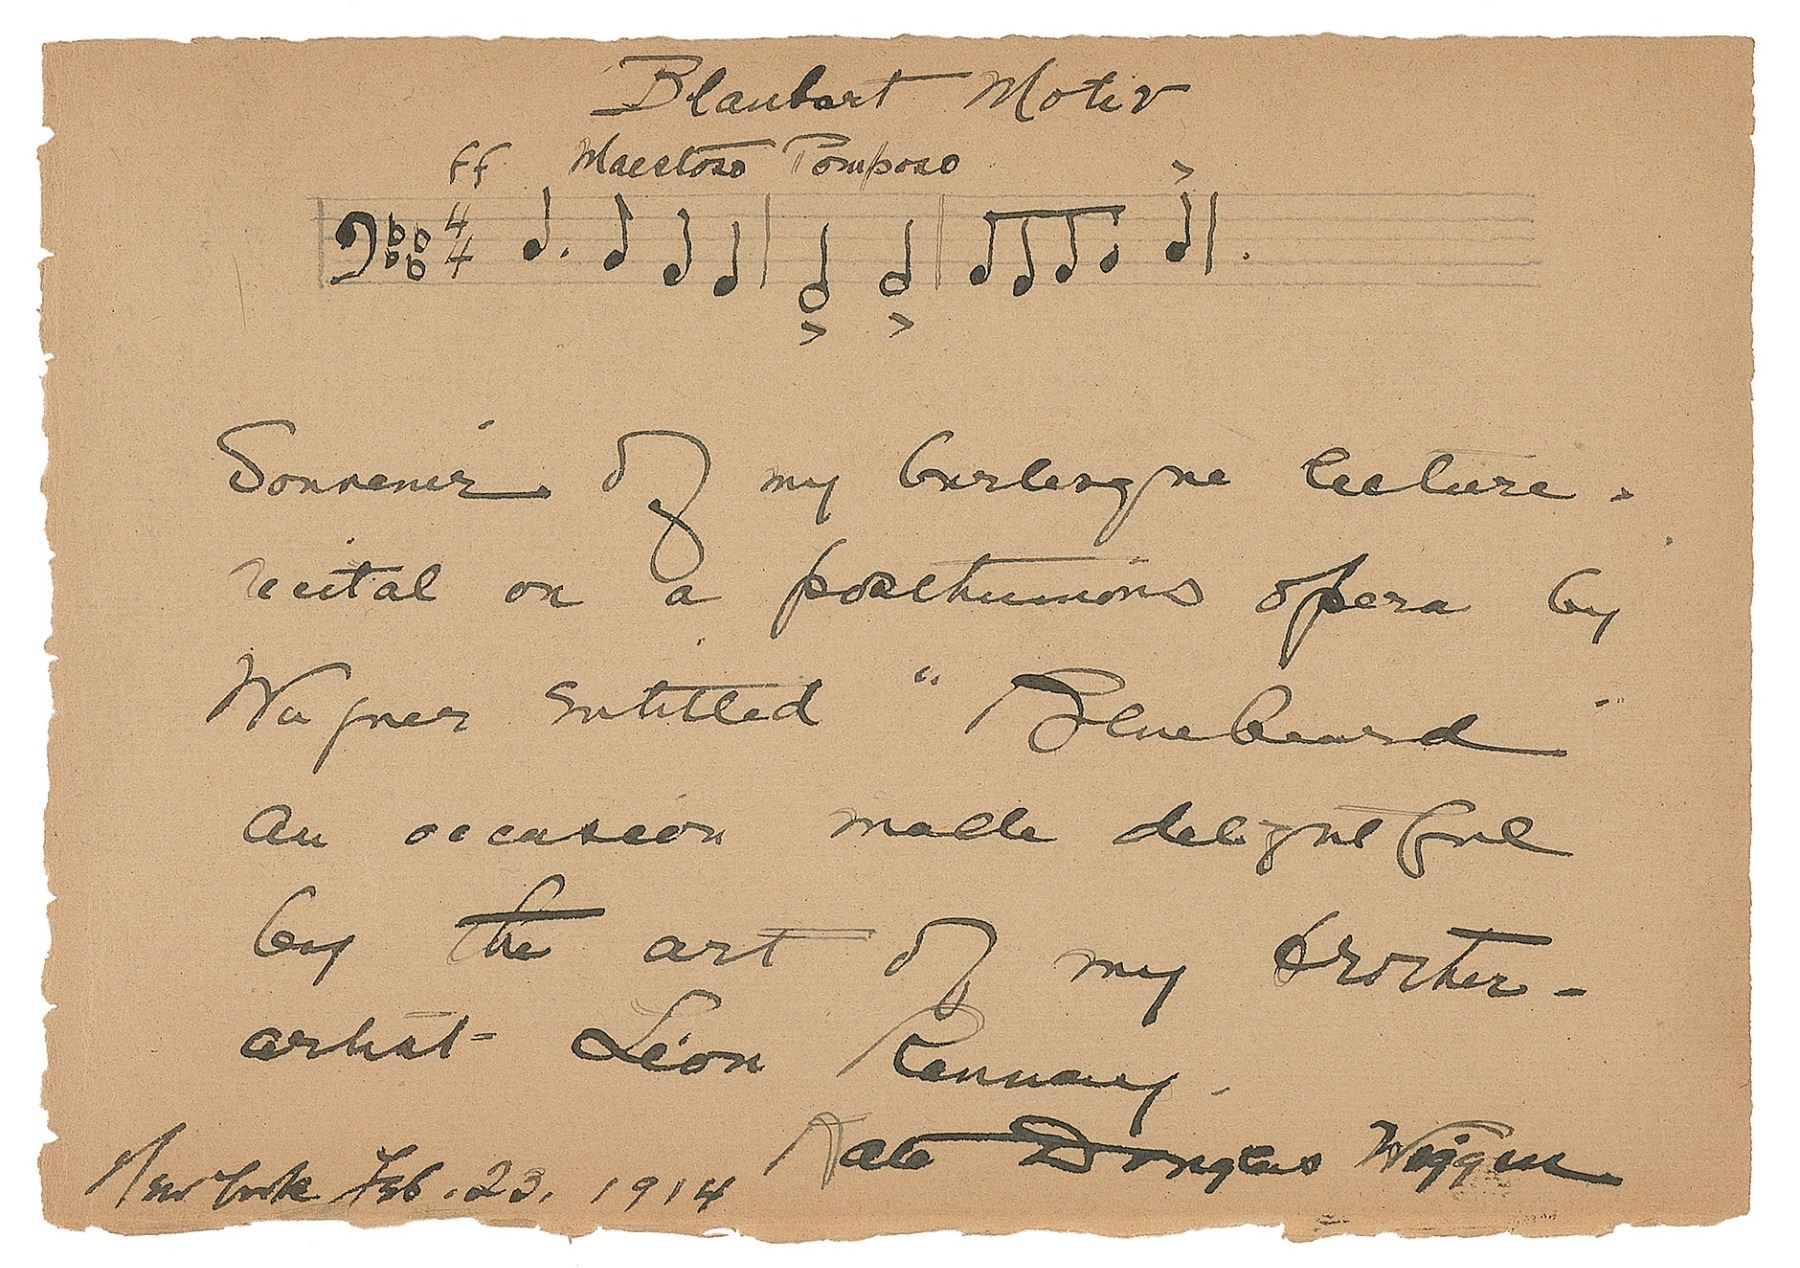 Blaubart Motiv
ff Maestoso Pomposo
4
4
Souvenir of my burlesque lecture-
recital on a posthumous opera by
Wagner entitled "Bluebeard"
An occasion made delightful
by the art of my brother-
artist - Léon Rennay.
Kate Douglas Wiggin
New York Feb. 23, 1914